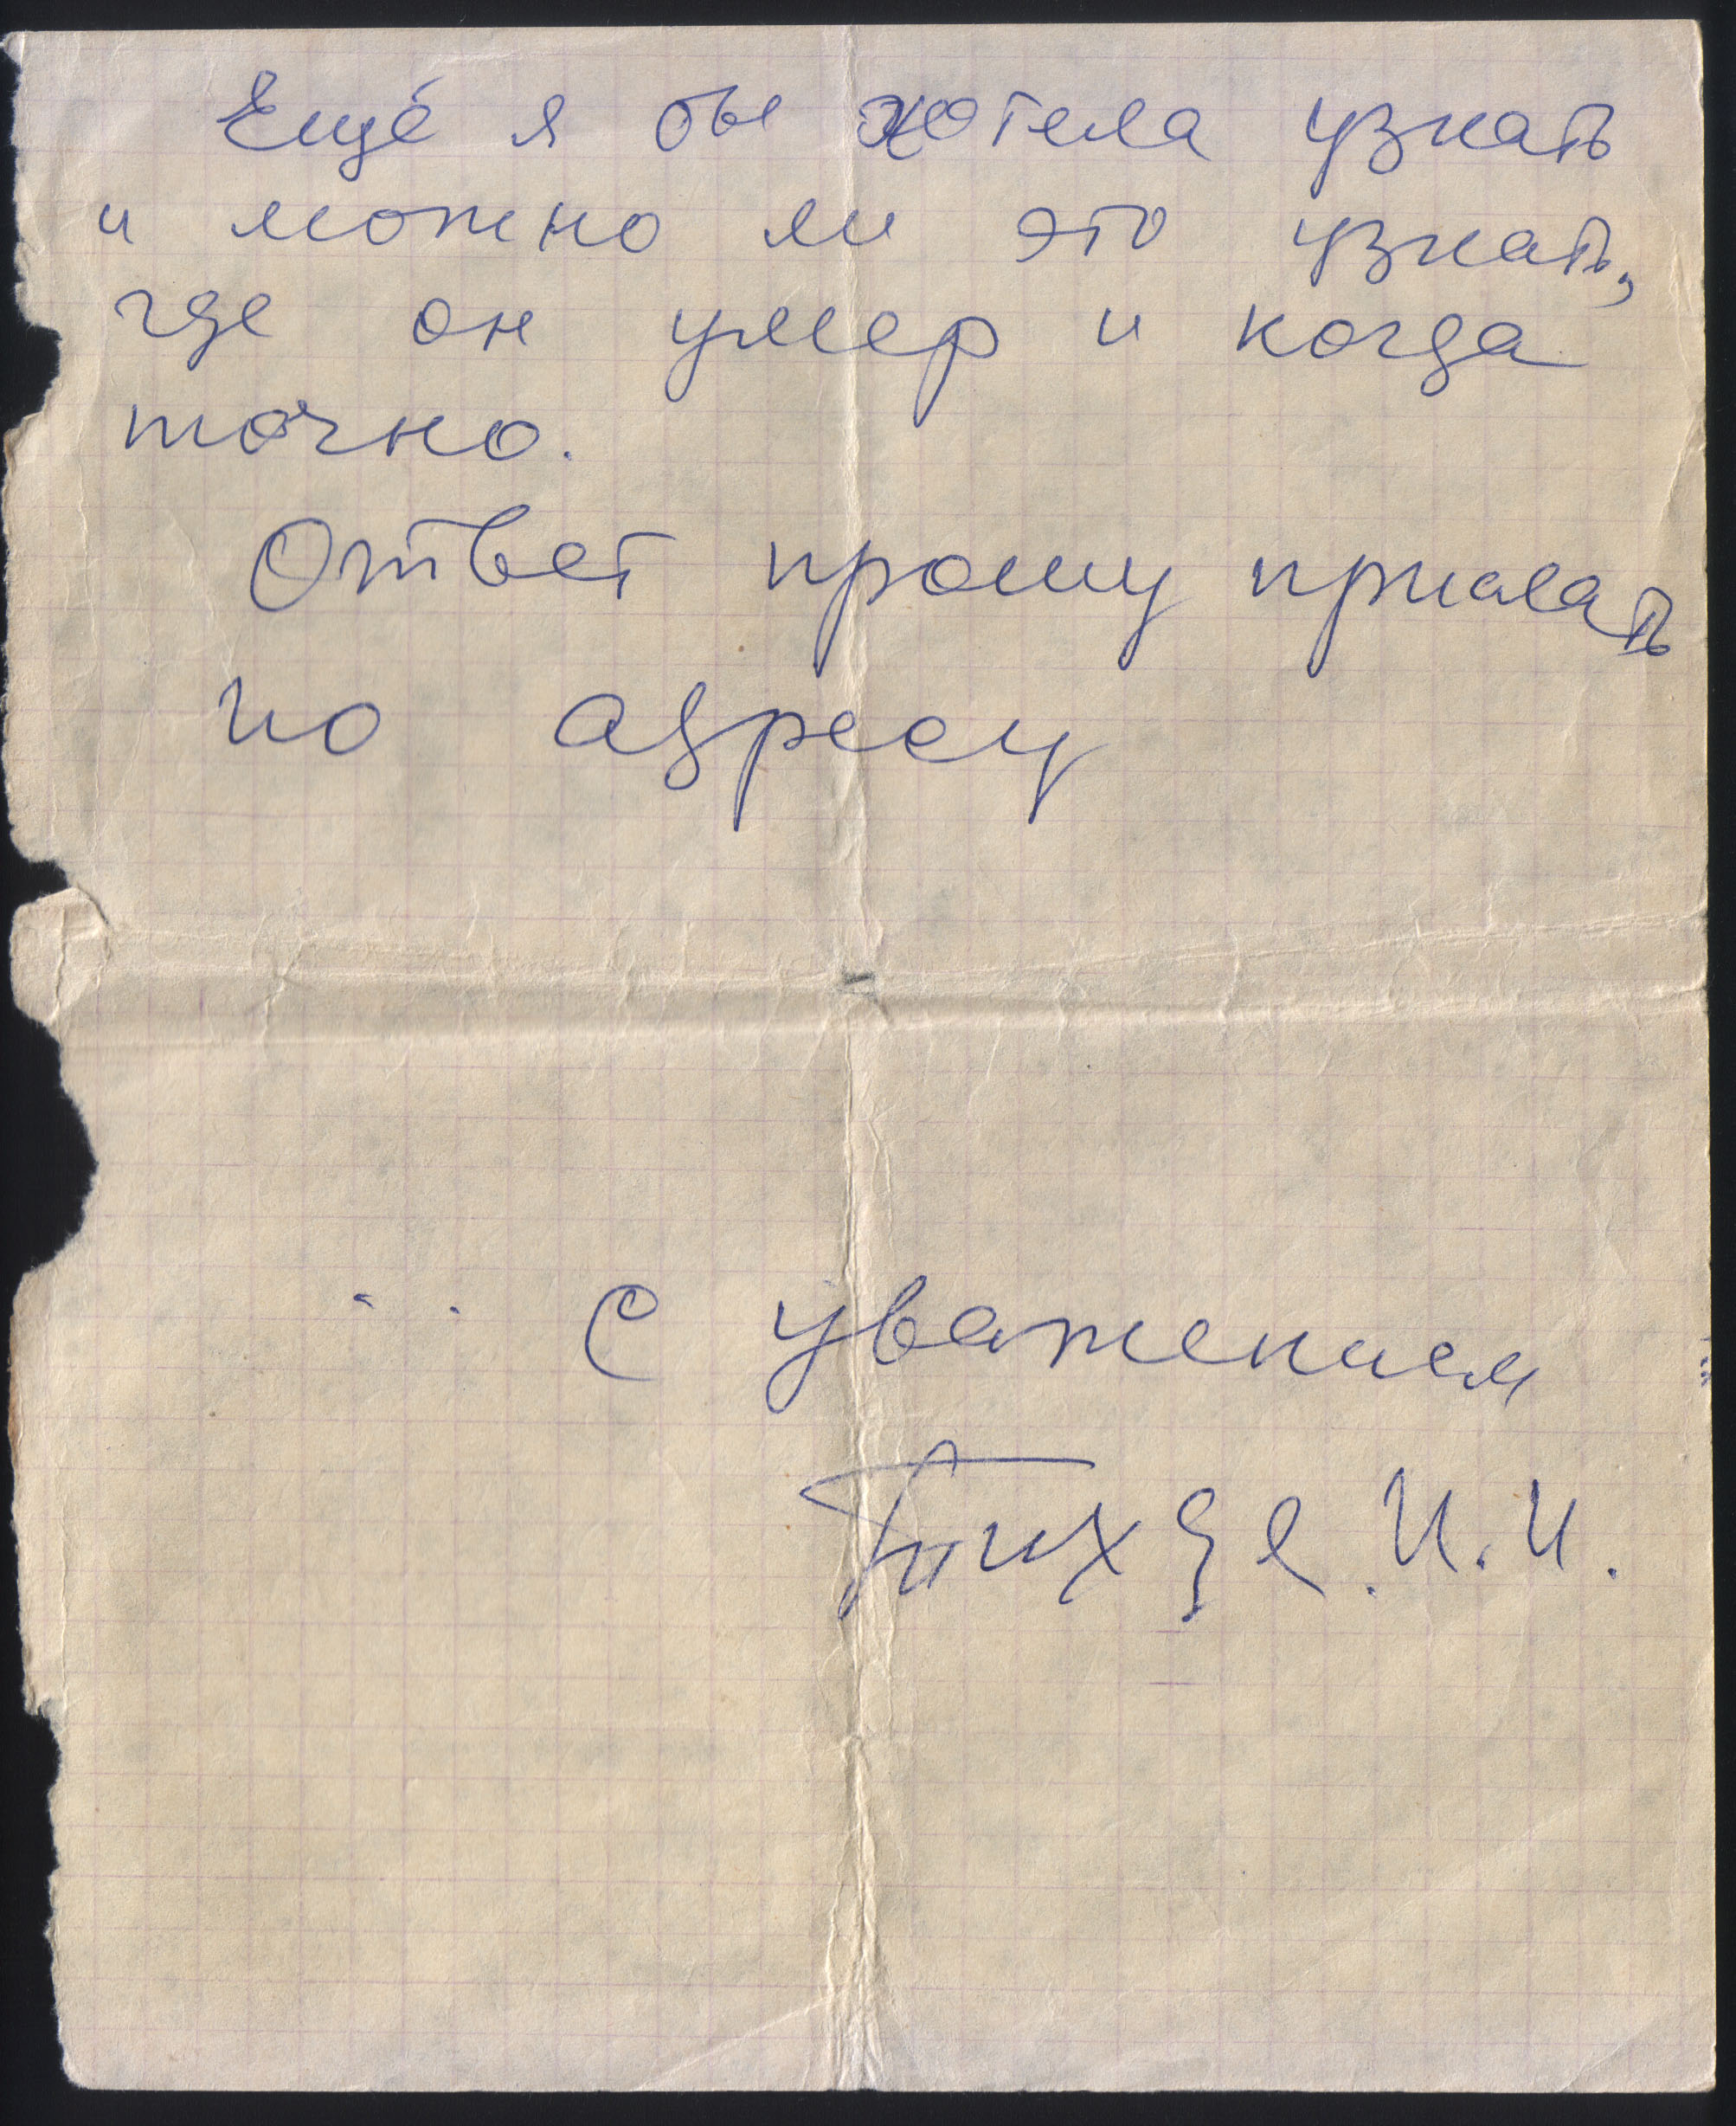 Ещё я бы хотела узнать
и можно ли это узнать,
где он умер и когда
точно.
Ответ прошу прислать
по адресу
С уважением
И.И.